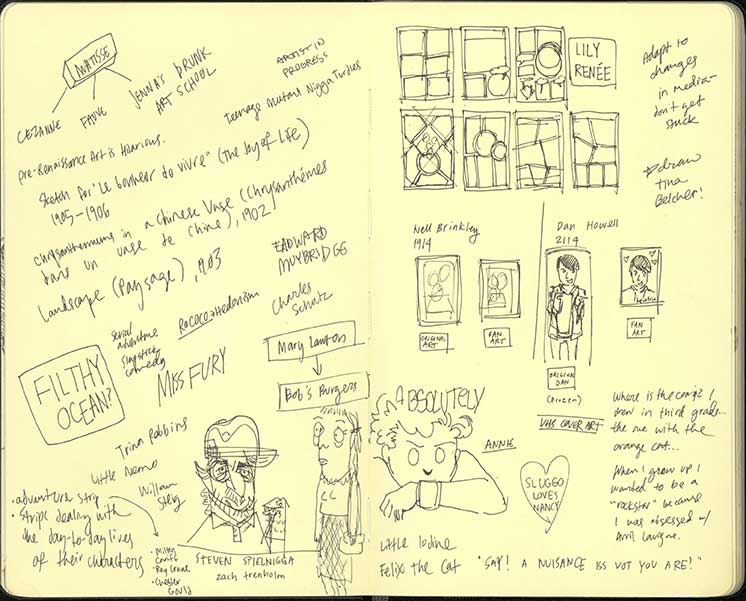 MATISSE
CEZANNE
FAUVE
JENNA'S DRUNK
ART SCHOOL
ARTIST IN
PROGRESS
Teenage Mutant Nigga Turtles
pre-Renaissance Art is Hilarious.
Sketch for "Le bonheur de vivre" (The Joy of Life)
1905-1906
Chrysanthemums in a Chinese Vase (Chrysanthémes
dans un vase de Chine), 1902
Landscape (Paysage), 1903
EADWARD
MUYBRIDGE
Charles
Schultz
Rococo → Hedonism
Serial
adventure
Slapstick
comedy
MISS FURY
FILTHY
OCEAN?
Mary Lawton
Bob's Burgers
Trina Robbins
Little Nemo
William
Steig
• adventure strip
• strips dealing with
the day-to-day lives
of their characters
• Milton
Caniff
• Roy Crane
• Chester
Gould
STEVEN SPIELNIGGA
zach trenholm
LILY
RENÉE
Adapt to
changes
in media-
don't get
stuck
draw
Tina
Belcher!
Nell Brinkley
1914
ORIGINAL
ART
FAN
ART
Dan Howell
2114
ORIGINAL
DAN
(frozen)
FAN
ART
VHS COVER ART
ABSOLUTELY
ANNIE
SLUGGO
LOVES
NANCY
Where is the comic I
drew in third grade...
the one with the
orange cat...
When I grew up I
wanted to be a
"rockstar" because
I was obsessed w/
Avril Lavigne.
Little Iodine
Felix the Cat
"SAY! A NUISANCE ISS VOT YOU ARE!"